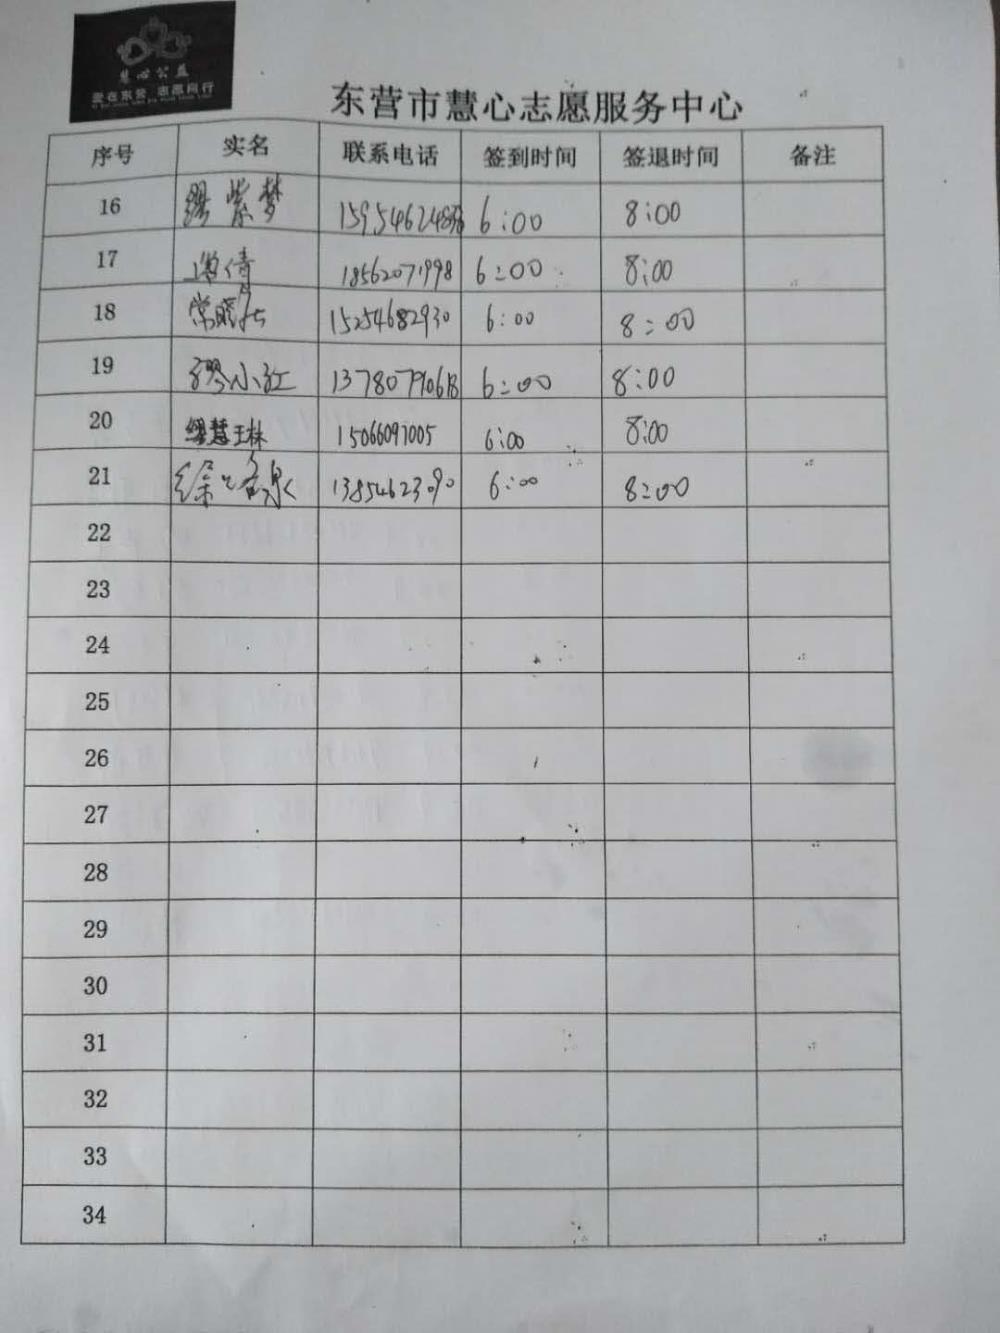 慧心公益
爱在东营 志愿同行
东营市慧心志愿服务中心
序号 实名 联系电话 签到时间 签退时间 备注
16 缪紫梦 6:00 8:00
17 倩 18562071998 6:00 8:00
18 常晓 15254682930 6:00 8:00
19 缪小红 6:00 8:00
20 缪慧琳 15066091005 6:00 8:00
21 徐 泉 13854623090 6:00 8:00
22
23
24
25
26
27
28
29
30
31
32
33
34